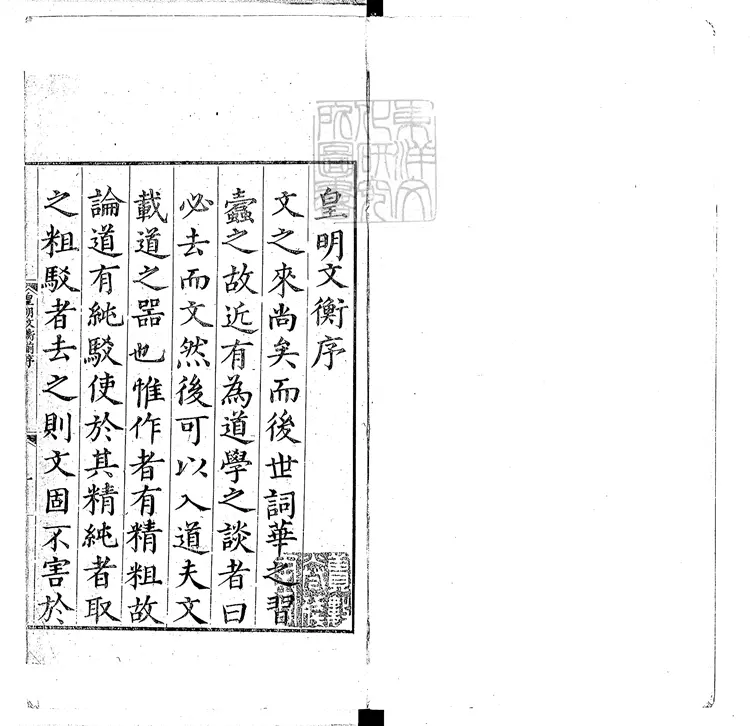 皇明文衡序
文之來尚矣而後世詞華之習
蠧之故近有為道學之談者曰
必去而文然後可以入道夫文
載道之器也惟作者有精粗故
論道有純駁使於其精純者取
之粗駁者去之則文固不害於
皇明文衡前序
一
東洋文
化研究
所圖書